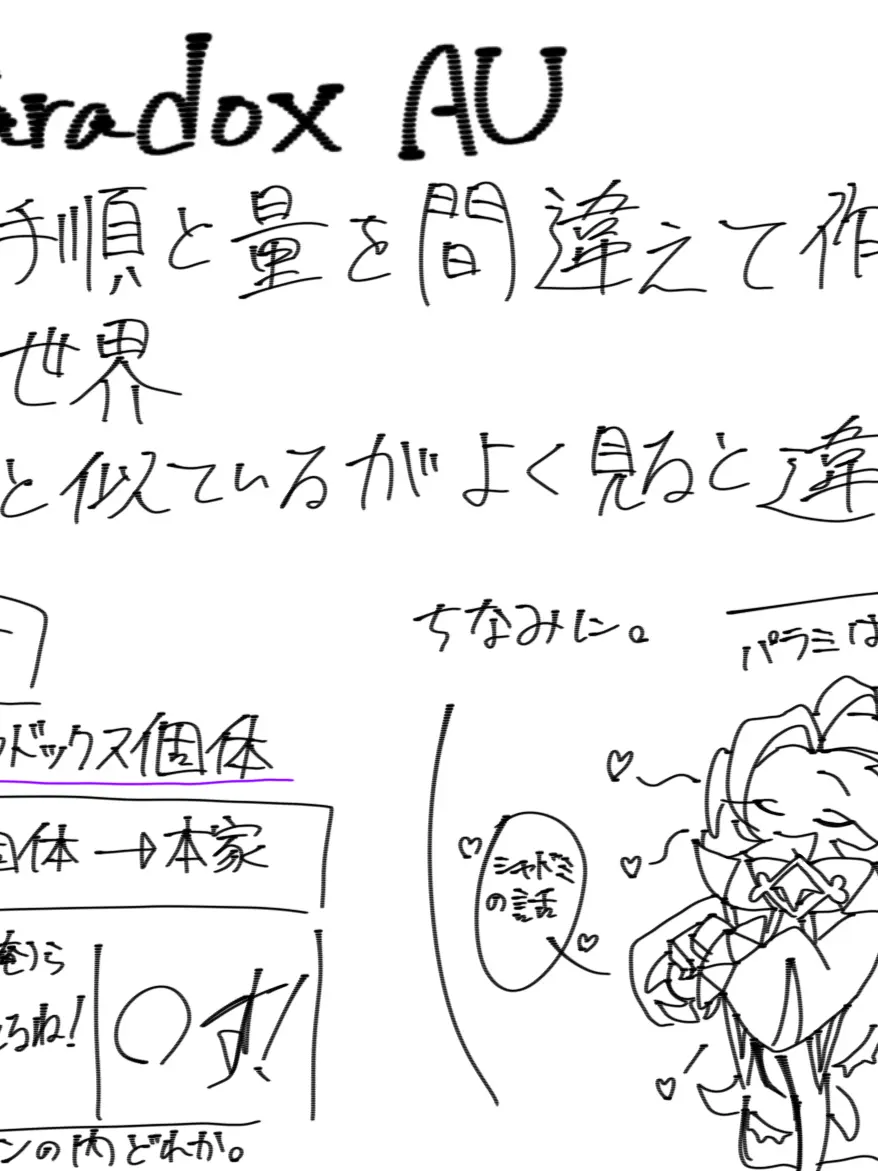 aradox AU
手順と量を間違えて作
世界
と似ているがよく見ると違
ちなみに。
パラミは
ドックス個体
個体→本家
シャドミ
の話
俺ら
るね!
○す!
ンの内どれか。